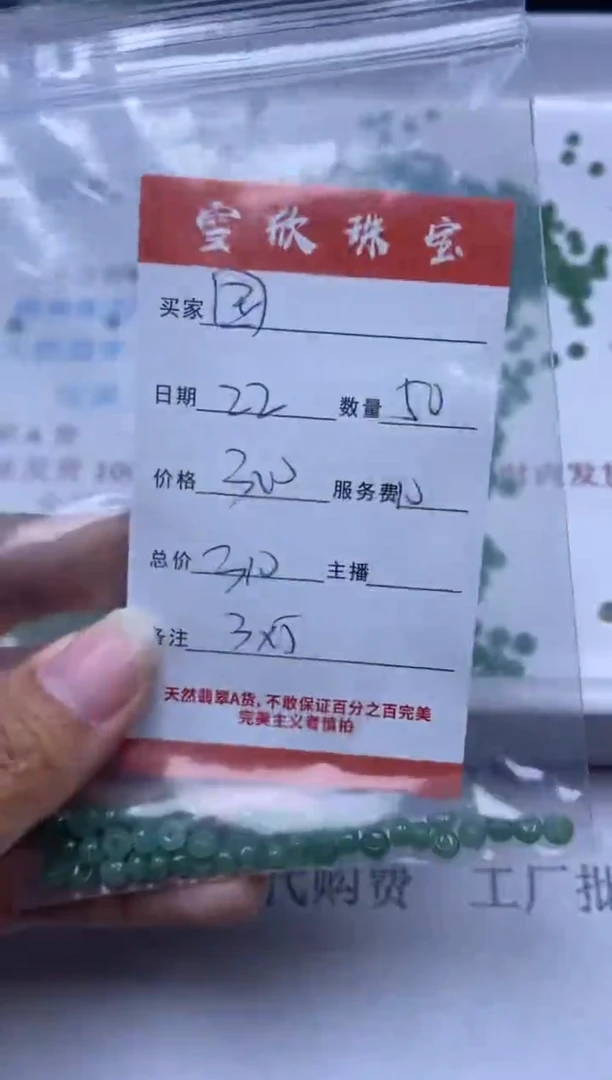 雪欣珠宝
买家
日期 22 数量 50
价格 300 服务费 10
总价 310 主播
备注 3x5
天然翡翠A货，不敢保证百分之百完美
完美主义者慎拍
代购费 工厂批